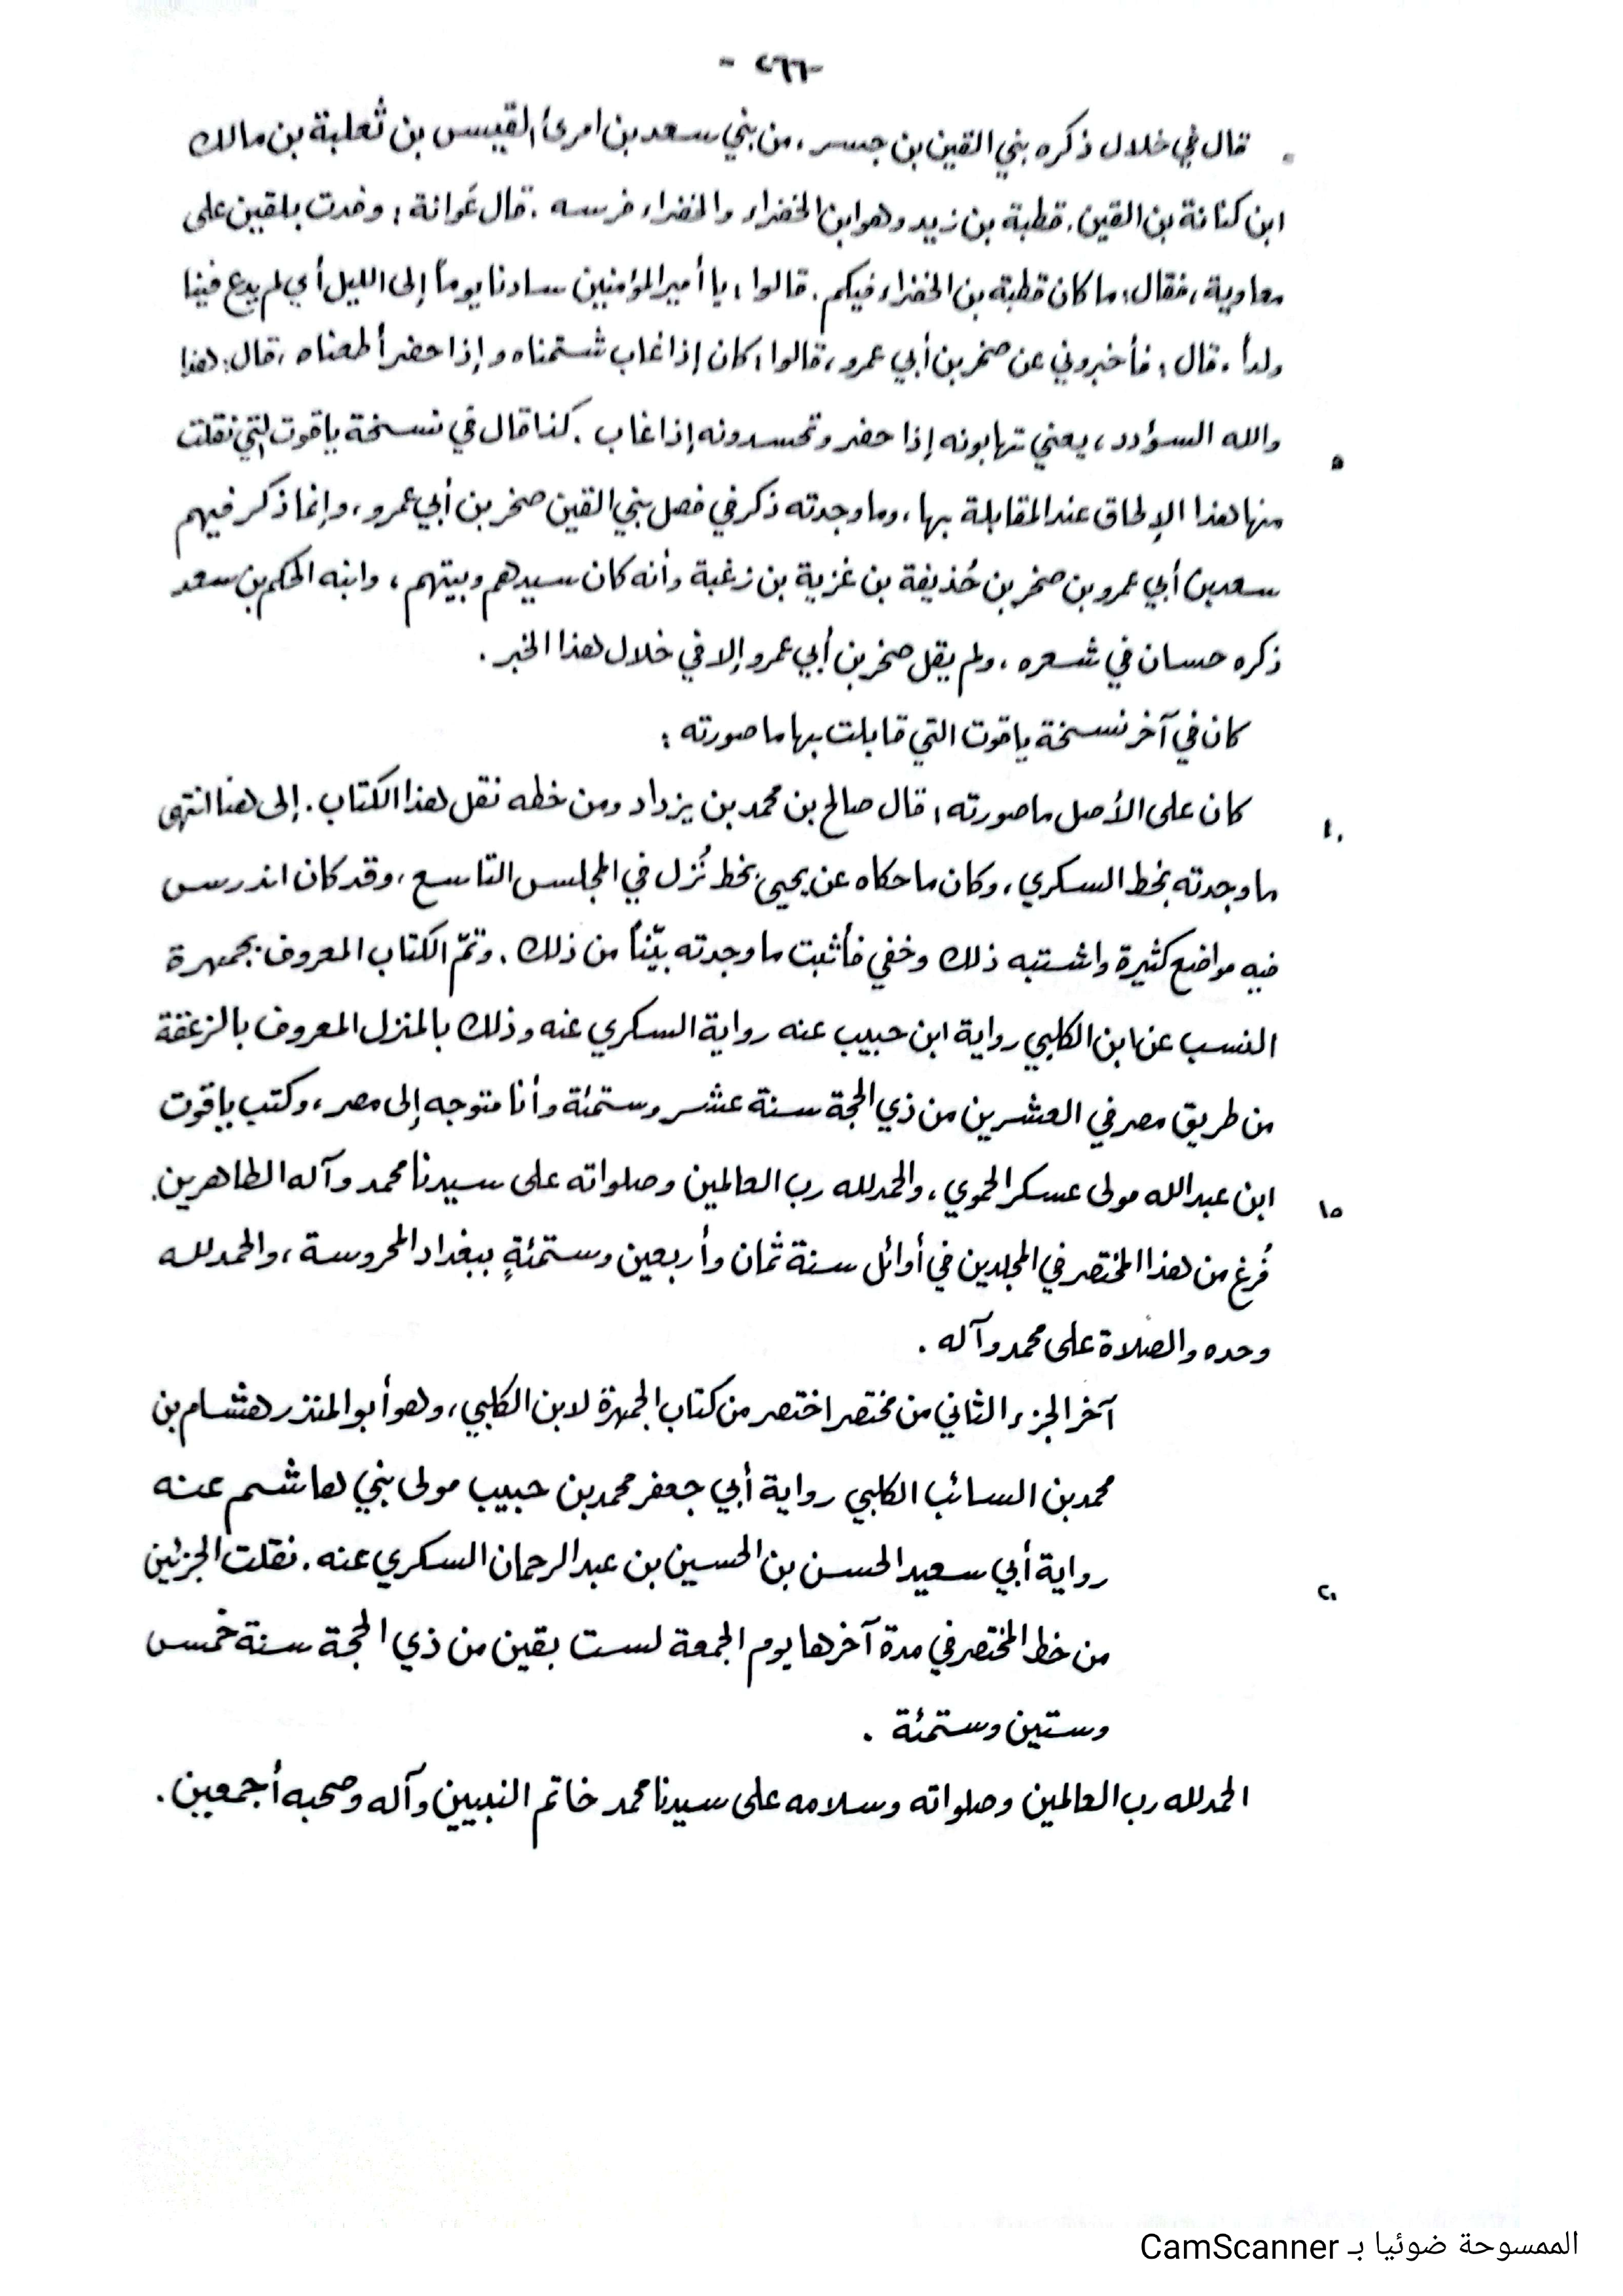 - ٢٦٦ -
قال في خلال ذكره بني القين بن جسر ، من بني سعد بن امرئ القيس بن ثعلبة بن مالك
ابن كنانة بن القين . قطبة بن زيد وهو ابن الخضراء والخضراء فرسه . قال عَوانة : وفدت بلقين على
معاوية ، فقال : ما كان قطبة بن الخضراء فيكم . قالوا : يا أمير المؤمنين سادنا يوماً إلى الليل أي لم يدع فينا
ولداً . قال : فأخبروني عن صخر بن أبي عمرو ، قالوا : كان إذا غاب شتمناه وإذا حضر أطعناه ، قال : هذا
والله السؤدد ، يعني تهابونه إذا حضر وتحسدونه إذا غاب . كذا قال في نسخة ياقوت التي نقلت
٥
منها هذا الإلحاق عند المقابلة بها ، وما وجدته ذكر في فصل بني القين صخر بن أبي عمرو ، وإنما ذكر فيهم
سعد بن أبي عمرو بن صخر بن حُذيفة بن غزية بن زغبة وأنه كان سيدهم وبيتهم ، وابنه الحكم بن سعد
ذكره حسان في شعره ، ولم يقل صخر بن أبي عمرو إلا في خلال هذا الخبر .
كان في آخر نسخة ياقوت التي قابلت بها ما صورته :
كان على الأصل ما صورته : قال صالح بن محمد بن يزداد ومن خطه نقل هذا الكتاب . إلى هنا انتهى
١٠
ما وجدته بخط السكري ، وكان ما حكاه عن يحيى بخط نُزل في المجلس التاسع ، وقد كان اندرس
فيه مواضع كثيرة واشتبه ذلك وخفي فأثبت ما وجدته بيّناً من ذلك . وتمّ الكتاب المعروف بجمهرة
النسب عن ابن الكلبي رواية ابن حبيب عنه رواية السكري عنه وذلك بالمنزل المعروف بالزعقة
من طريق مصر في العشرين من ذي الحجة سنة عشر وستمئة وأنا متوجه إلى مصر ، وكتب ياقوت
ابن عبد الله مولى عسكر الحموي ، والحمد لله رب العالمين وصلواته على سيدنا محمد وآله الطاهرين .
١٥
فُرغ من هذا المختصر في المجلدين في أوائل سنة ثمان وأربعين وستمئةٍ ببغداد المحروسة ، والحمد لله
وحده والصلاة على محمد وآله .
آخر الجزء الثاني من مختصر اختصر من كتاب الجمهرة لابن الكلبي ، وهو أبو المنذر هشام بن
محمد بن السائب الكلبي رواية أبي جعفر محمد بن حبيب مولى بني هاشم عنه
رواية أبي سعيد الحسن بن الحسين بن عبد الرحمان السكري عنه . نقلت الجزئين
٢٠
من خط المختصر في مدة آخرها يوم الجمعة لست بقين من ذي الحجة سنة خمس
وستين وستمئة .
الحمد لله رب العالمين وصلواته وسلامه على سيدنا محمد خاتم النبيين وآله وصحبه أجمعين .
الممسوحة ضوئيا بـ CamScanner